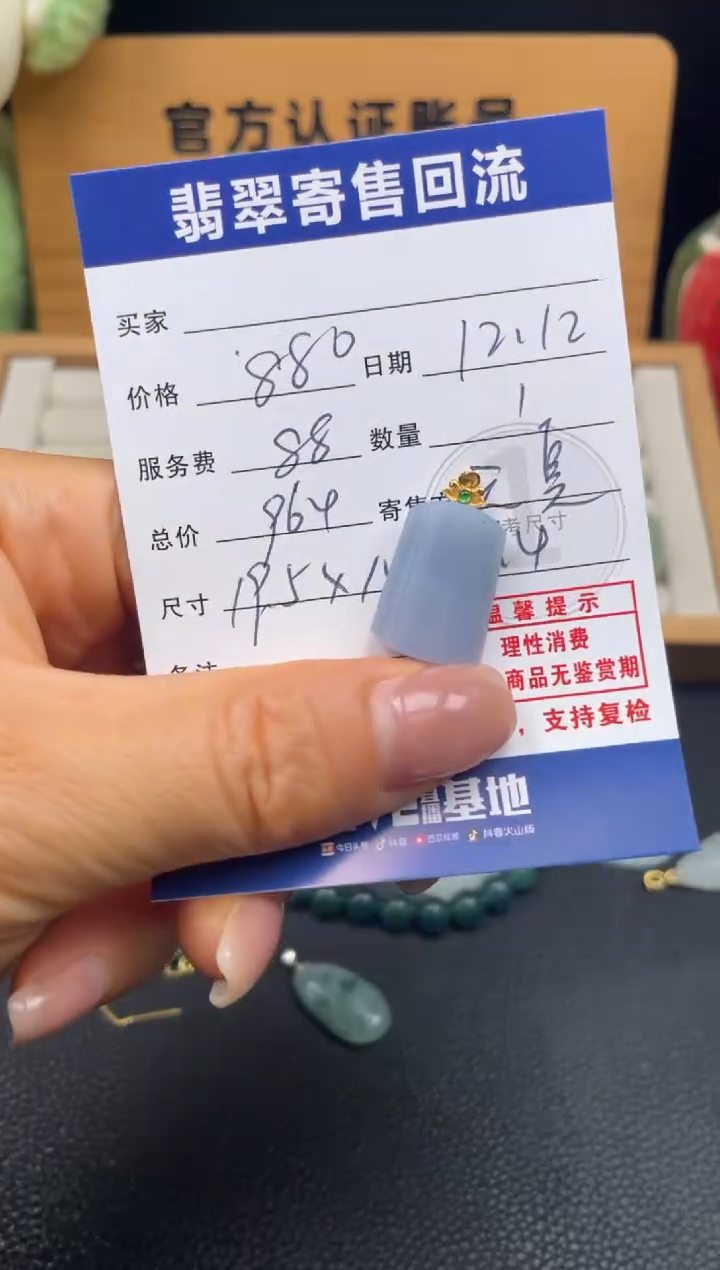 官方认证账号
翡翠寄售回流
买家
价格 880 日期 12.12
服务费 88 数量 1
总价 964 寄售
尺寸 19.5x1 4
考尺寸
温馨提示
理性消费
商品无鉴赏期
，支持复检
直播基地
今日头条 抖音 西瓜视频 抖音火山版